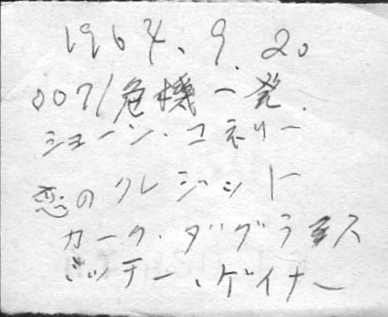 1964.9.20
007/危機一発.
ショーン・コネリー
恋のクレジット
カーク・ダグラス
ミッチー・ゲイナー